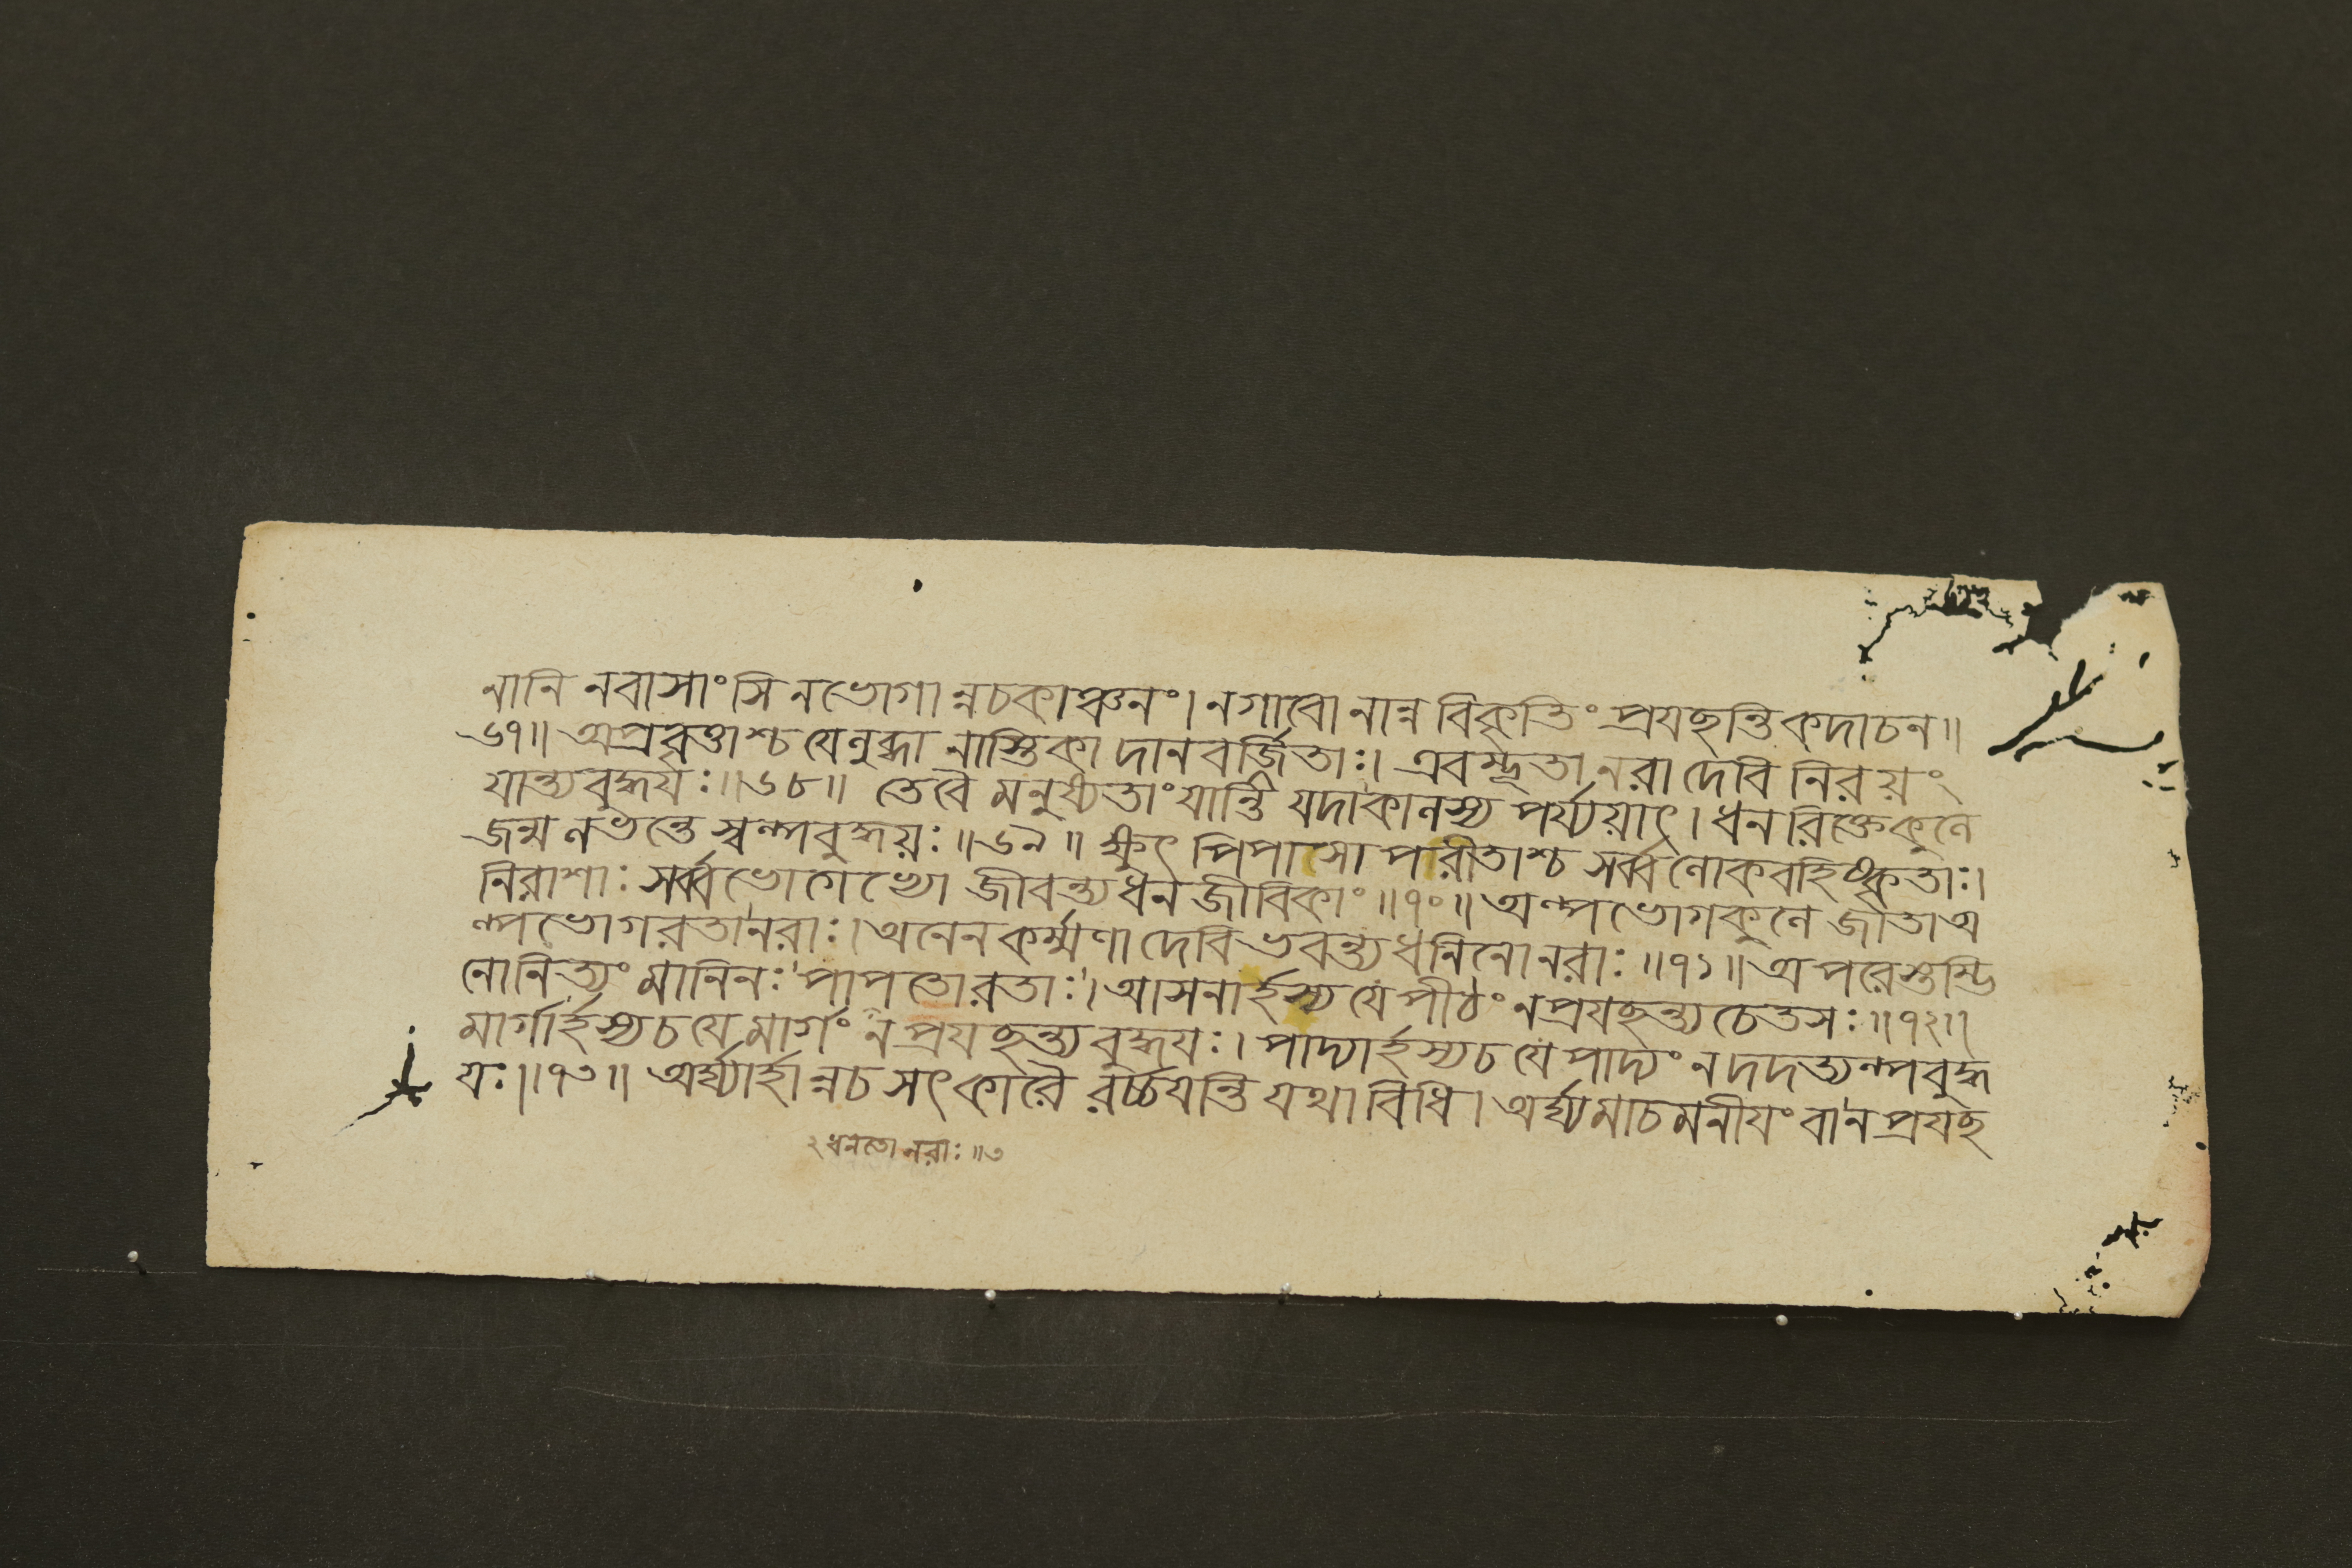 নানি নবাসাংসি নভোগান্নচকাঞ্চনং। নগাবো নান্ন বিকৃতিং প্রযছন্তিকদাচন॥
৬৭॥ অপ্রবৃত্তাশ্চ যেলুব্ধা নাস্তিকা দানবর্জিতাঃ। এবম্ভূতা নরা দেবি নিরয়ং
যান্ত্যবুদ্ধয়ঃ॥৬৮॥ তেবৈ মনুষ্যতাং যান্তি যদাকালস্য পর্য্যয়াৎ। ধনরিক্তেকুলে
জন্ম লভন্তে স্বল্পবুদ্ধয়ঃ॥৬৯॥ ক্ষুৎ পিপাসা পরীতাশ্চ সর্ব্বলোকবহিষ্কৃতাঃ।
নিরাশাঃ সর্ব্বভোগেভ্যো জীবন্ত্যধন জীবিকাং॥৭০॥ অল্পভোগকুলে জাতা অ
ল্পভোগরতানরাঃ। অনেনকর্ম্মণা দেবি ভবন্ত্যধনিনোনরাঃ॥৭১॥ অপরেস্তম্ভি
নোনিত্যং মানিনঃ পাপতোরতাঃ। আসনার্হস্য যে পীঠং নপ্রযছন্ত্যচেতসঃ॥৭২॥
মার্গার্হস্যচ যে মার্গং ন প্রযছন্ত্যবুদ্ধয়ঃ। পাদ্যার্হস্যচ যে পাদ্যং ন দদত্যল্পবুদ্ধ
য়ঃ॥৭৩॥ অর্ঘ্যার্হান্নচ সৎকারৈ রর্চ্চযন্তি যথাবিধি। অর্ঘ্যমাচমনীয়ং বানপ্রযছ
২ধনতো নরাঃ॥৩